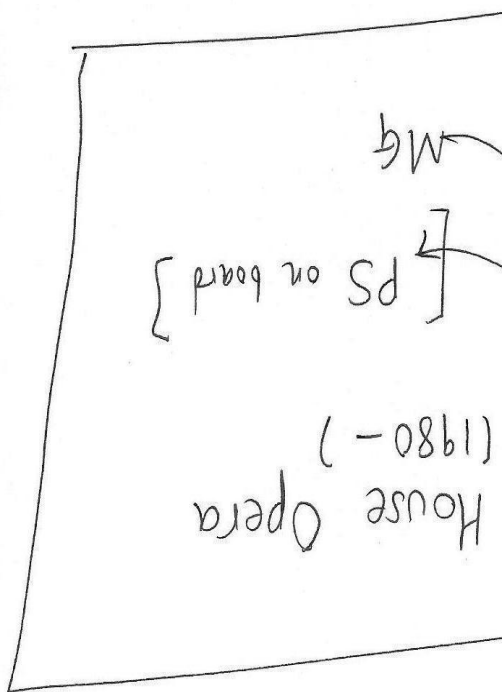 House Opera
(1980 - )
[PS on board]
MG